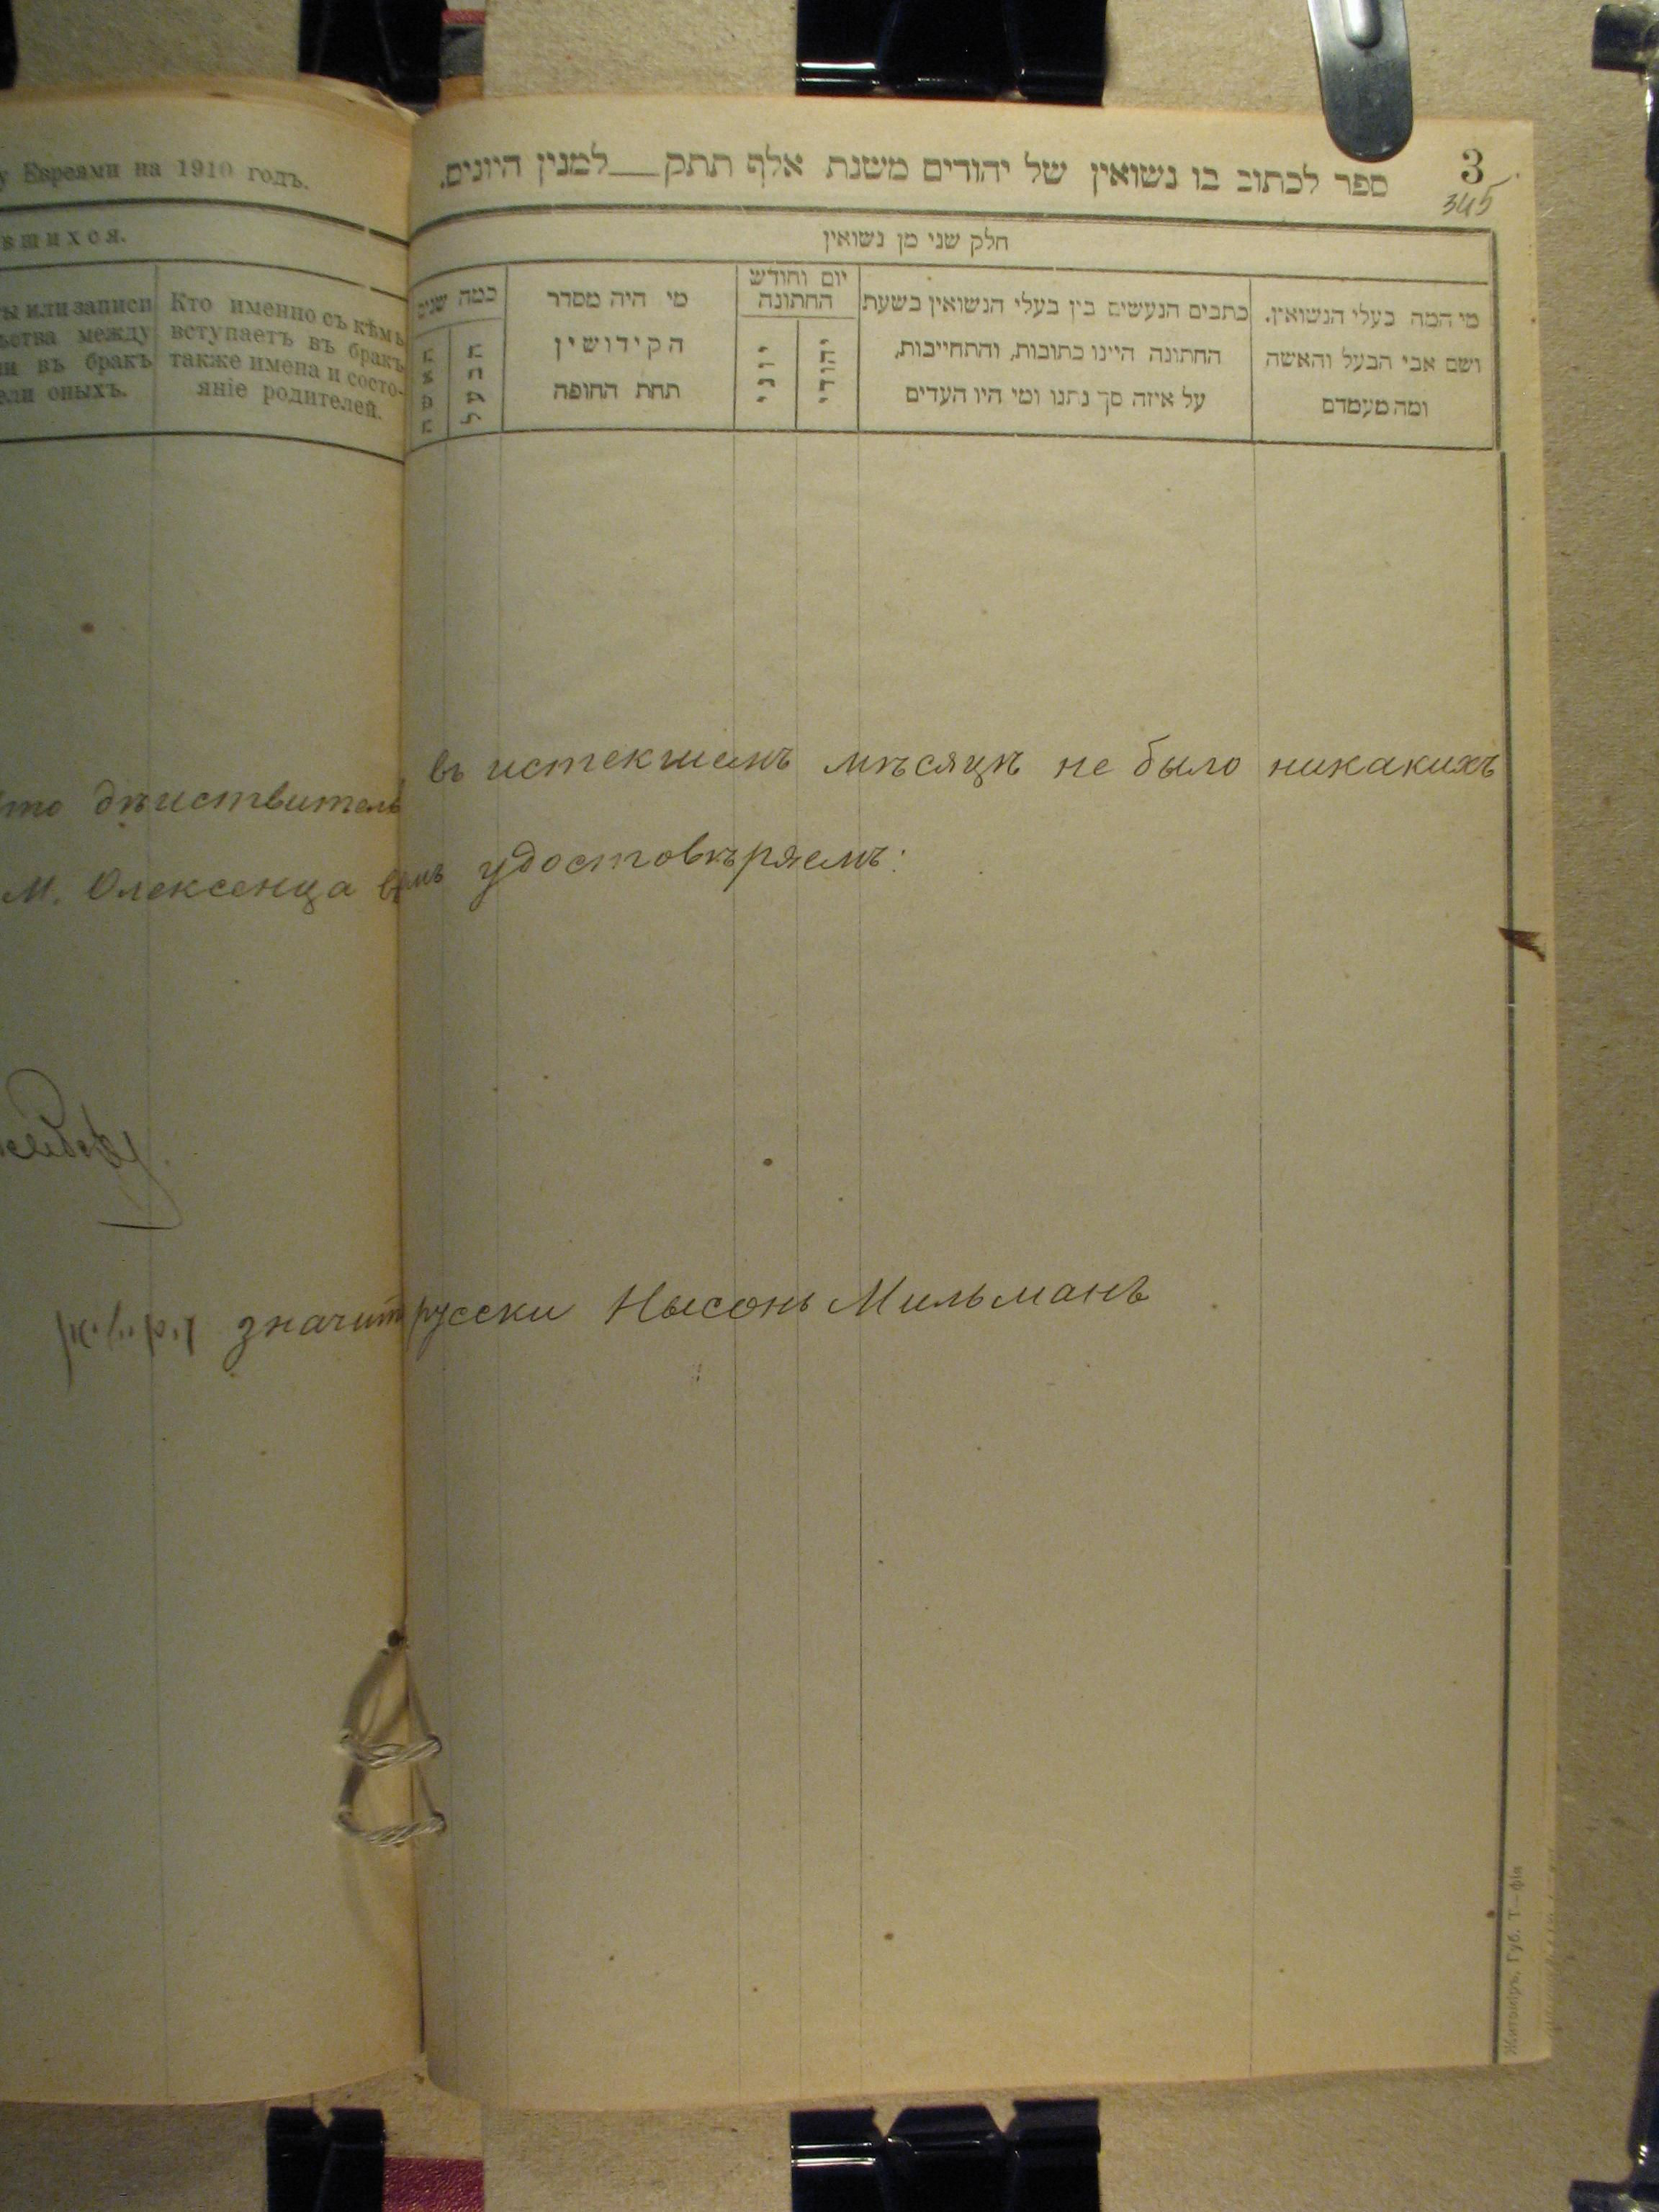 у Евреями на 1910 годъ.
вшихся.
ты или записи
ьства между
ии въ бракъ
ели оныхъ.
Кто именно съ кѣмъ
вступаетъ въ бракъ
также имена и состо-
яніе родителей.
3
345
ספר לכתוב בו נשואין של יהודים משנת אלף תתק__למנין היונים.
חלק שני מן נשואין
מי המה בעלי הנשואין.
ושם אבי הבעל והאשה
ומה מעמדם
כתבים הנעשים בין בעלי הנשואין בשעת
החתונה היינו כתובות, והתחייבות,
על איזה סך נתנו ומי היו העדים
יום וחודש
החתונה
יהודי
יוני
מי היה מסדר
הקידושין
תחת החופה
כמה שנים
הבעל
האשה
въ истекшемъ мѣсяцѣ не было никакихъ
что дѣйствитель
М. Олексенца
удостовѣряемъ:
значитъ русски Нысонъ Мильманъ
Житомiръ, Губ. Т—фiя